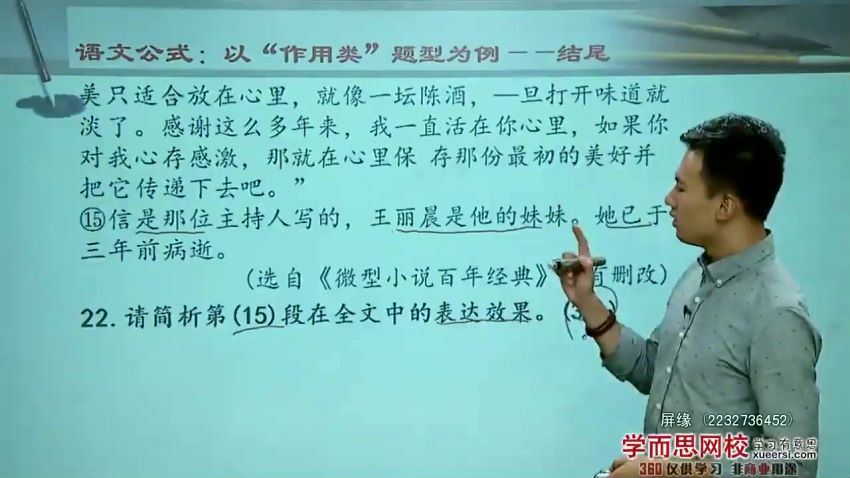 语文公式：以“作用类”题型为例——结尾
美只适合放在心里，就像一坛陈酒，一旦打开味道就
淡了。感谢这么多年来，我一直活在你心里，如果你
对我心存感激，那就在心里保 存那份最初的美好并
把它传递下去吧。”
⑮信是那位主持人写的，王丽晨是他的妹妹。她已于
三年前病逝。
(选自《微型小说百年经典》 有删改)
22.请简析第(15)段在全文中的表达效果。(3
屏缘 (2232736452)
学而思网校 学习有意思
xueersi.com
360仅供学习 非商业用途